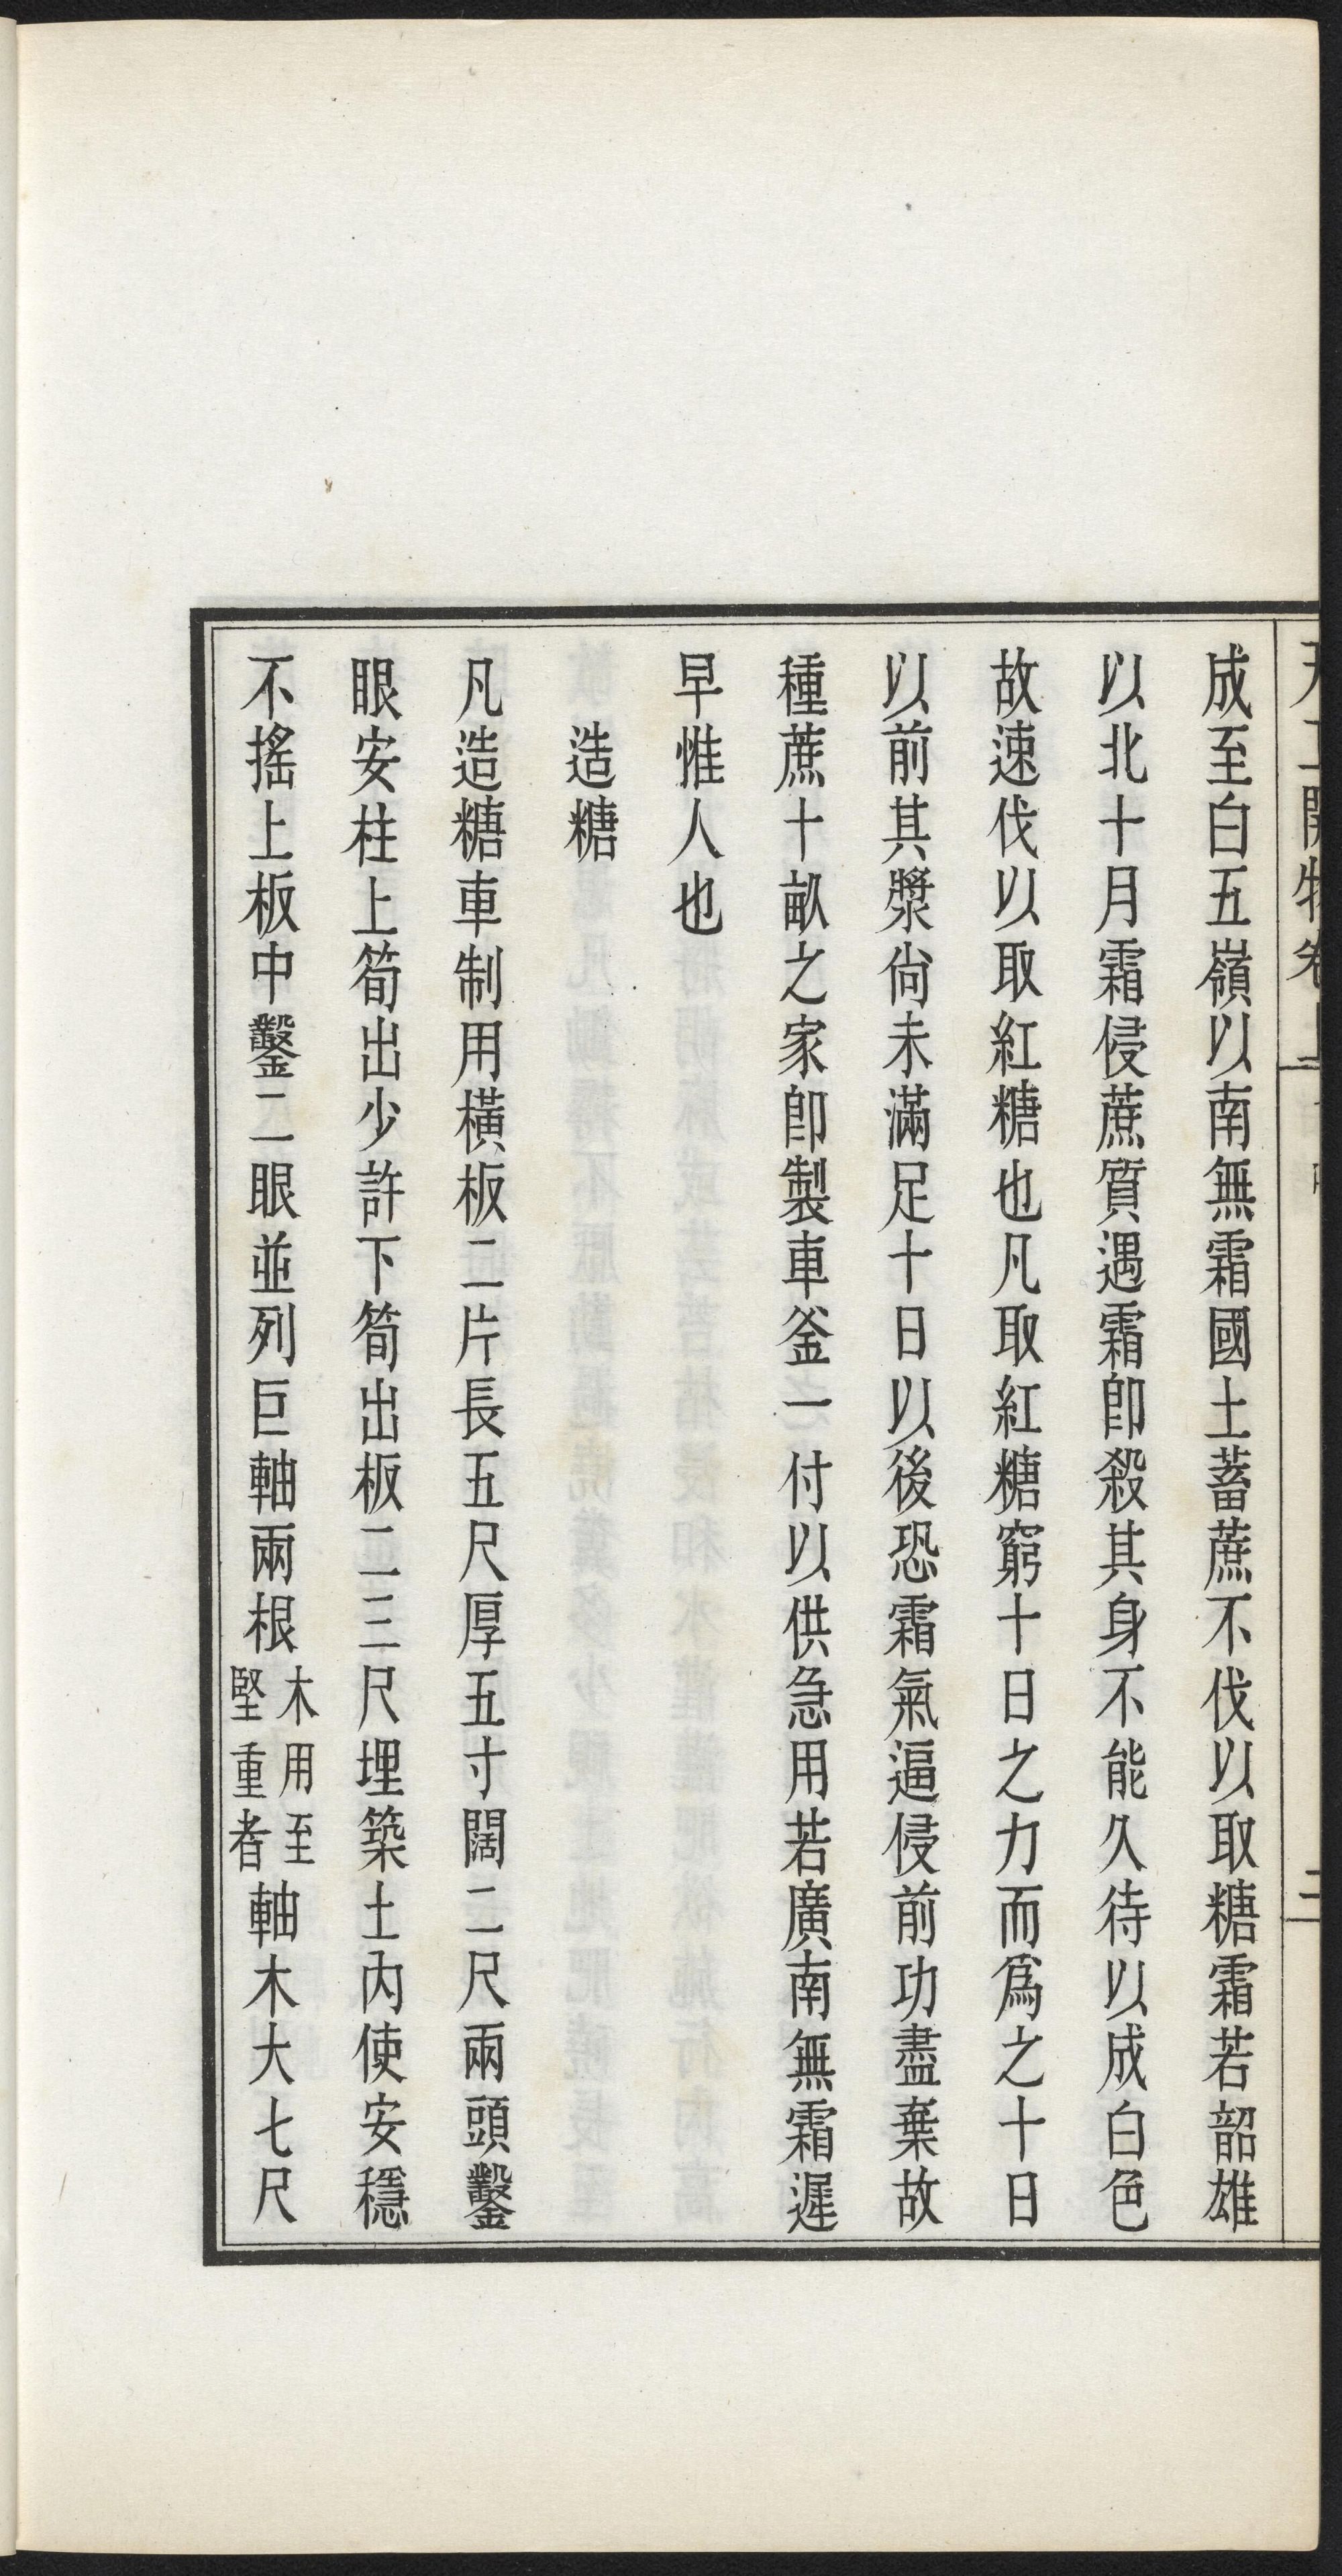 天工開物卷上
二
成至白五嶺以南無霜國土蓄蔗不伐以取糖霜若韶雄
以北十月霜侵蔗質遇霜卽殺其身不能久待以成白色
故速伐以取紅糖也凡取紅糖窮十日之力而爲之十日
以前其漿尙未滿足十日以後恐霜氣逼侵前功盡棄故
種蔗十畝之家卽製車釜一付以供急用若廣南無霜遲
早惟人也
造糖
凡造糖車制用橫板二片長五尺厚五寸闊二尺兩頭鑿
眼安柱上筍出少許下筍出板二三尺埋築土內使安穩
不搖上板中鑿二眼並列巨軸兩根木用至堅重者軸木大七尺